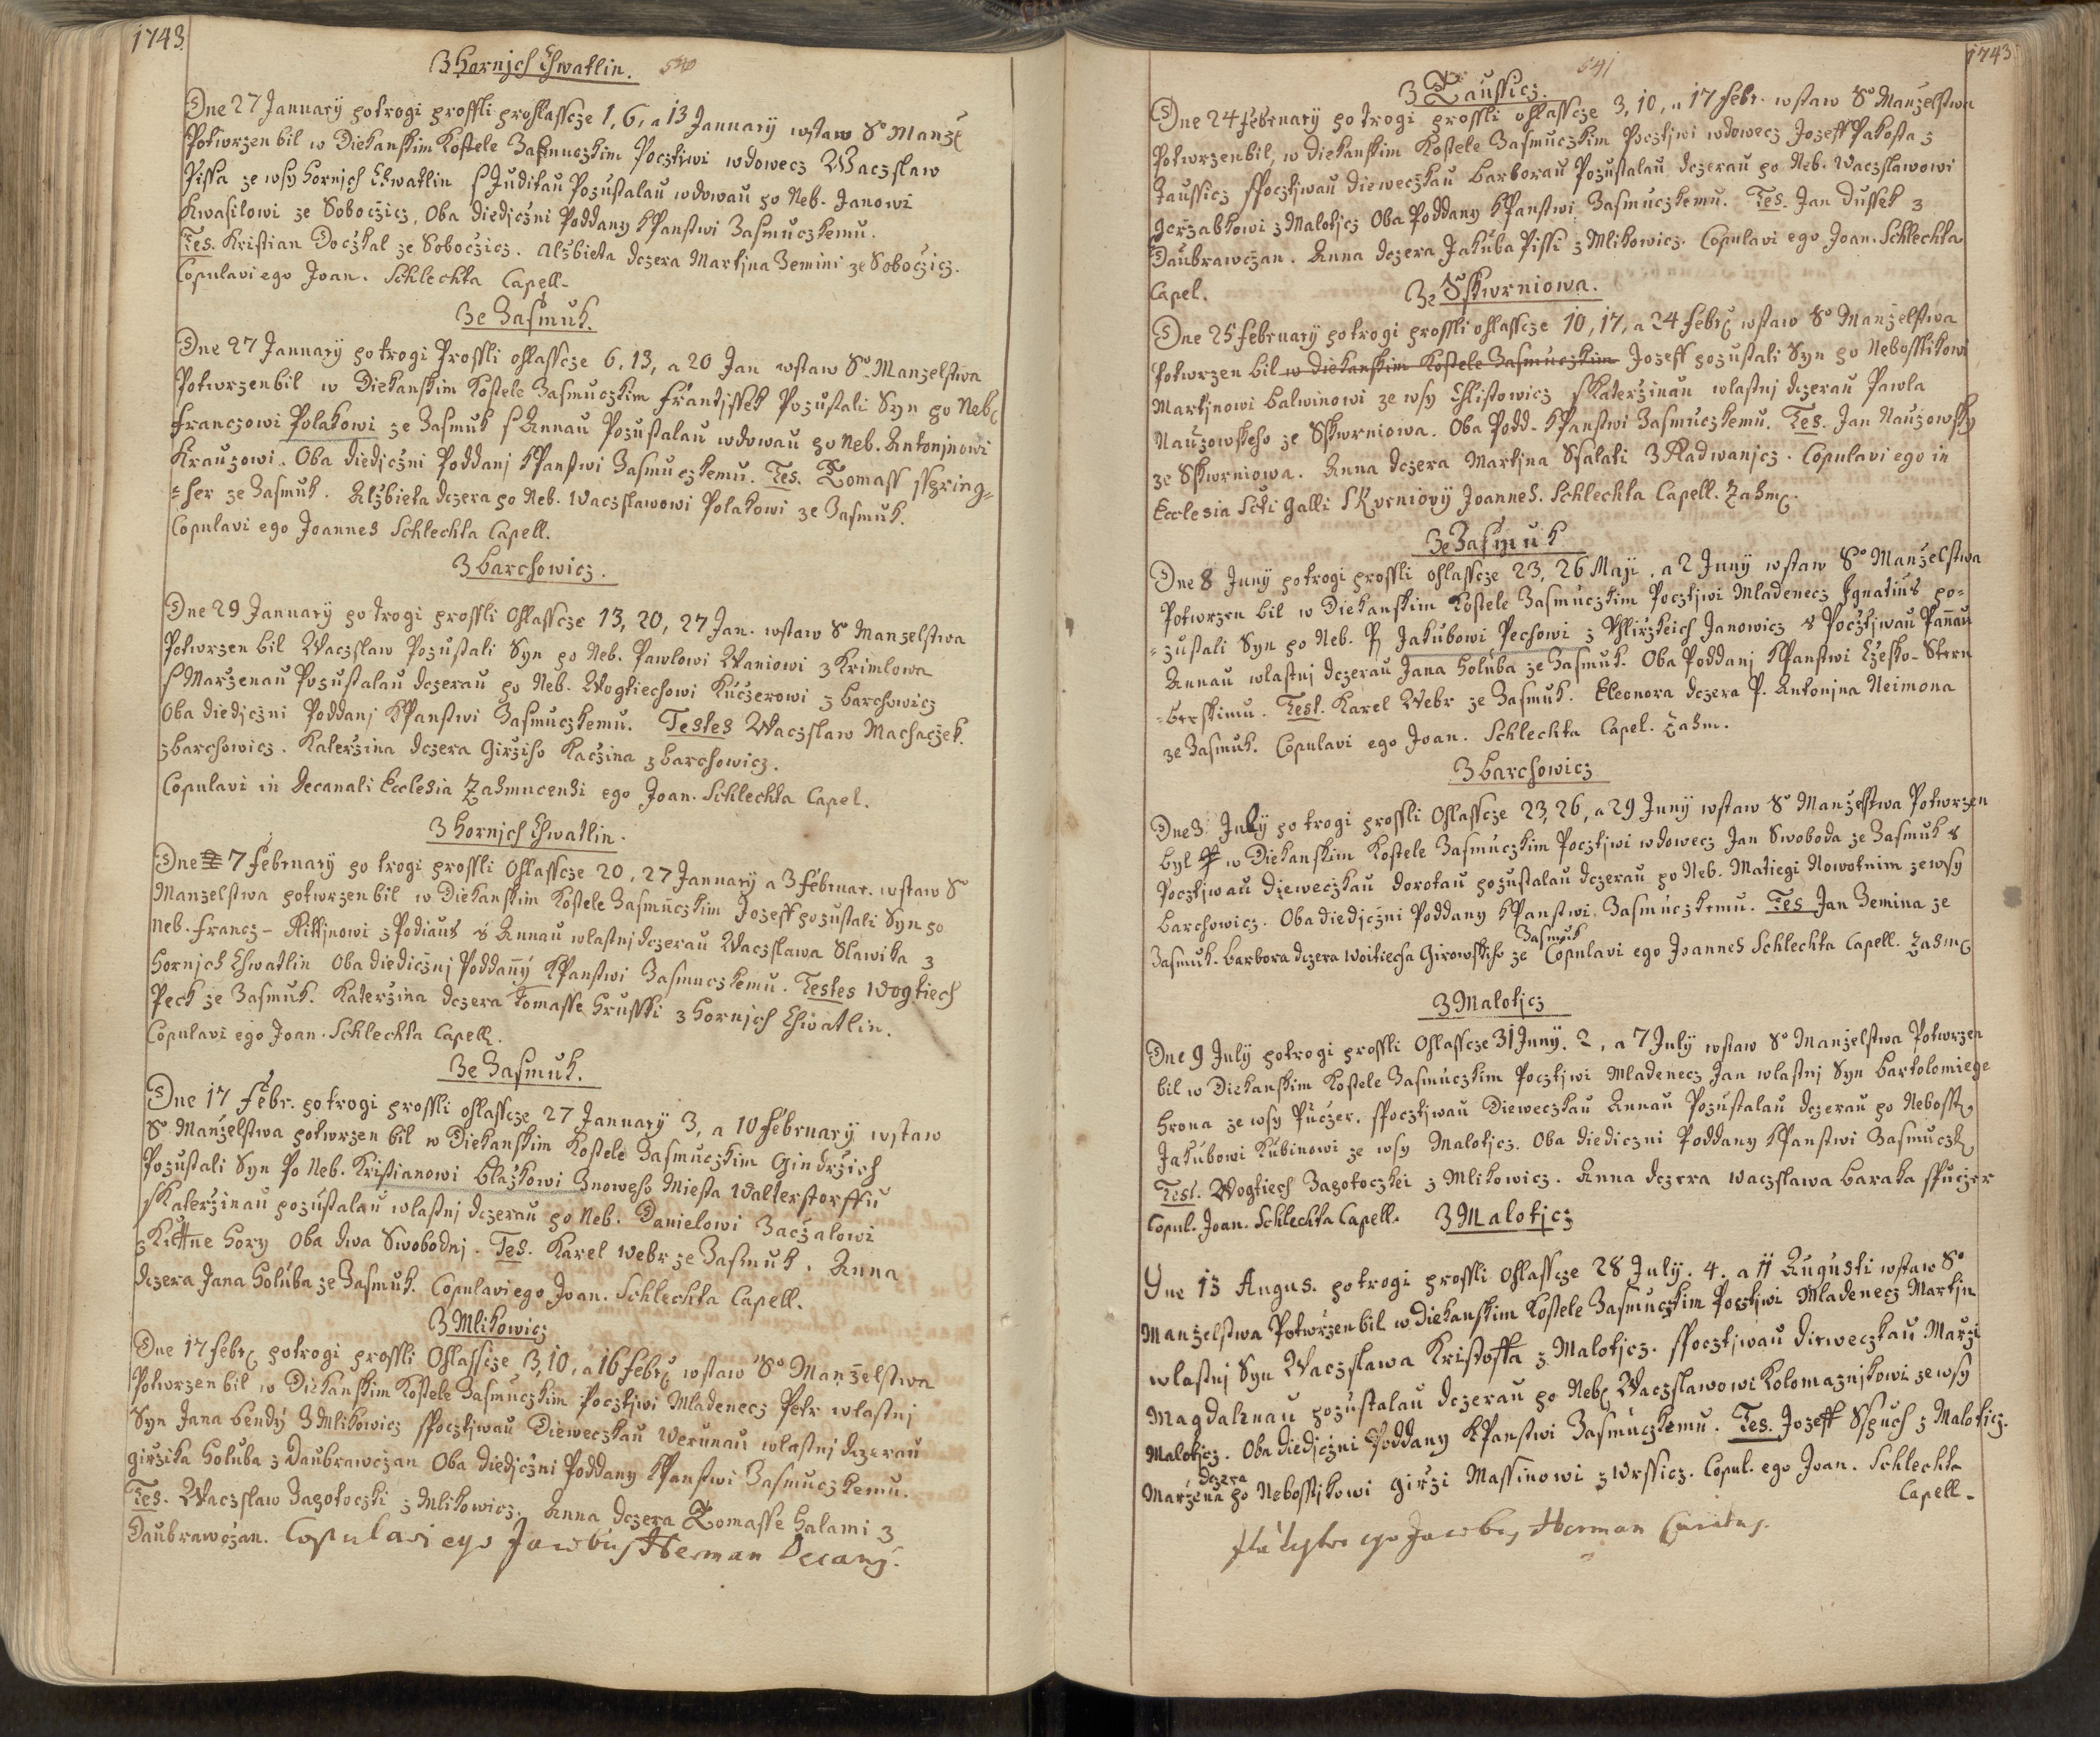 1743.
3 Hornjch Chwatlin. 540
Dne 27 January po trogi prossli prohlassce 1, 6, a 13 January wstaw So Manž
Potwrzen bil w Diekanskim Kostele Zasmuczkim Pocztiwi wdowecz Waczslaw
Pissa ze wsy Hornjch Chwatlin s Juditau Pozustalau wdowau po Neb. Janowi
Kwasilowi ze Soboczicz, Oba diedjczni Poddany kPanstwi Zasmuczkemu.
Tes. Kristian Doczkal ze Soboczicz. Alžbieta dczera Martjna Zemini ze Soboczicz.
Copulavi ego Joan. Schlechta Capell.
Ze Zasmuk.
Dne 27 January po trogi Prossli ohlassce 6, 13, a 20 Jan wstaw So Manzelstwa
Potwrzen bil w Diekanskim Kostele Zasmuczkim Frantjssek Pozustali Syn po Neb.
Franczowi Polakowi ze Zasmuk s Annau Pozustalau wdowau po Neb. Antonjnowi
Krauzowi. Oba diedjczni Poddanj kPanstwi Zasmuczkemu. Tes. Tomass sspring=
=her ze Zasmuk. Alžbieta dczera po Neb. Waczslawowi Polakowi ze Zasmuk.
Copulavi ego Joannes Schlechta Capell.
3 Barchowicz.
Dne 29 January po trogi prossli Ohlassce 13, 20, 27 Jan. wstaw So Manzelstwa
Potwrzen bil Waczslaw Pozustali Syn po Neb. Pawlowi Waniowi z Krimlowa
s Marzenau Pozustalau dczerau po Neb. Wogtiechowi Kuczerowi z Barchowicz
Oba diedjczni Poddanj kPanstwi Zasmuczkemu. Testes Waczslaw Machaczek.
z Barchowicz. Katerzina dczera Girziho Kaczina z Barchowicz.
Copulavi in Decanali Ecclesia Zasmucensi ego Joan. Schlechta Capel.
3 Hornjch Chwatlin.
Dne 7 February po trogi prossli Ohlassce 20, 27 January a 3 Februar. wstaw So
Manzelstwa potwrzen bil w Diekanskim Kostele Zasmuczkim Jozeff pozustali Syn po
Neb. Francz- Kittjnowi z Podiaus s Annau wlastnj dczerau Waczslawa Slawika z
Hornjch Chwatlin Oba diediczni Poddany kPanstwi Zasmuczkemu. Testes Wogtiech
Peck ze Zasmuk. Katerzina dczera Tomasse Hrusski z Hornjch Chwatlin.
Copulavi ego Joan. Schlechta Capell.
Ze Zasmuk.
Dne 17 Febr. po trogi prossli ohlassce 27 January 3, a 10 February wstaw
So Manzelstwa potwrzen bil w Diekanskim Kostele Zasmuczkim Gindrzich
Pozustali Syn Po Neb. Kristianowi Blazkowi Znoweho Miesta Walterstorffu
s Katerzinau pozustalau wlastnj dczerau po Neb. Danielowi Zaczalowi
z Kuttne Hory Oba dwa Swobodnj. Tes. Karel Webr ze Zasmuk. Anna
dczera Jana Holuba ze Zasmuk. Copulavi ego Joan. Schlechta Capell.
3 Mlikowicz
Dne 17 Febr. po trogi prossli Ohlassce 3, 10, a 16 Febr. wstaw So Manzelstwa
Potwrzen bil w Diekanskim Kostele Zasmuczkim Pocztjwi Mladenecz Petr wlastnj
Syn Jana Bendy z Mlikowicz sPocztjwau Dieweczkau Werunau wlastnj dczerau
Girzika Holuba z Daubrawczan Oba diedjczni Poddany kPanstwi Zasmuczkemu.
Tes. Waczslaw Zagotoczki z Mlikowicz. Anna dczera Tomasse Halami z
Daubrawczan. Copulavi ego Jacobus Herman Decany.
1743.
541
3 Taussicz.
Dne 24 February po trogi prossli ohlassce 3, 10, a 17 Febr. wstaw So Manzelstwa
Potwrzen bil, w Diekanskim Kostele Zasmuczkim Pocztjwi wdowecz Jozeff Pakosta z
Taussicz sPocztjwau dieweczkau Barborau Pozustalau dczerau po Neb. Waczslawowi
Gerzabkowi z Malotjcz Oba Poddany kPanstwi Zasmuczkemu. Tes. Jan Dussek z
Daubrawczan. Anna dczera Jakuba Pissi z Mlikowicz. Copulavi ego Joan. Schlechta
Capel.
Ze Skwrniowa.
Dne 25 February po trogi prossli ohlassce 10, 17, a 24 Febr. wstaw So Manzelstwa
Potwrzen bil w Diekanskim Kostele Zasmuczkim Jozeff pozustali Syn po Nebosstikowi
Martjnowi Balwinowi ze wsy Chlistowicz s Katerzinau wlastnj dczerau Pawla
Nauzowskeho ze Skwrniowa. Oba Podd. kPanstwi Zasmuczkemu. Tes. Jan Nauzowsky
ze Skwrniowa. Anna dczera Martjna Ssalati z Radwanjcz. Copulavi ego in
Ecclesia Scti Galli Skvrniovy Joannes. Schlechta Capell. Zasm.
Ze Zasmuk
Dne 8 Juny po trogi prossli ohlassce 23, 26 Maji, a 2 Juny wstaw So Manzelstwa
Potwrzen bil w Diekanskim Kostele Zasmuczkim Pocztjwi Mladenecz Ignatius po=
=zustali Syn po Neb. P. Jakubowi Pechowi z Uhlirzkeich Janowicz s Pocztjwau Pannau
Annau wlastnj dczerau Jana Holuba ze Zasmuk. Oba Poddanj kPanstwi Czesko-Stern
=berskimu. Test. Karel Webr ze Zasmuk. Eleonora dczera P. Antonjna Neimona
ze Zasmuk. Copulavi ego Joan. Schlechta Capel. Zasm.
3 Barchowicz
Dne 3 July po trogi prossli Ohlassce 23, 26, a 29 Juny wstaw So Manzelstwa Potwrzen
byl w Diekanskim Kostele Zasmuczkim Pocztjwi wdowecz Jan Swoboda ze Zasmuk s
Pocztjwau dieweczkau Dorotau pozustalau dczerau po Neb. Matiegi Nowotnim ze wsy
Barchowicz. Oba diedjczni Poddany kPanstwi Zasmuczkemu. Tes Jan Zemina ze
Zasmuk. Barbora dczera Woitiecha Girowskiho ze Zasmuk Copulavi ego Joannes Schlechta Capell. Zasm.
3 Malotjcz
Dne 9 July po trogi prossli Ohlassce 31 Juny. 2, a 7 July wstaw So Manzelstwa Potwrzen
bil w Diekanskim Kostele Zasmuczkim Pocztjwi Mladenecz Jan wlastnj Syn Bartolomiege
Hrona ze wsy Puczer. sPocztjwau Dieweczkau Annau Pozustalau dczerau po Neboss.
Jakubowi Kubinowi ze wsy Malotjcz. Oba diediczni Poddany kPanstwi Zasmuczk.
Test. Wogtiech Zagotoczkei z Mlikowicz. Anna dczera Waczslawa Baraka sPuczer
Copul. Joan. Schlechta Capell. 3 Malotjcz
Dne 13 Augus. po trogi prossli Ohlassce 28 July. 4. a 11 Augusti wstaw So
Manzelstwa Potwrzen bil w Diekanskim Kostele Zasmuczkim Pocztjwi Mladenecz Martjn
wlastnj Syn Waczslawa Kristoffa z Malotjcz. sPocztjwau dieweczkau Marzi
Magdalenau pozustalau dczerau po Neb. Waczslawowi Kolomaznjkowi ze wsy
Malotjcz. Oba diedjczni Poddany kPanstwi Zasmuczkemu. Tes. Jozeff Sspuch z Malotjcz.
Marzena dczera po Nebosstjkowi Girzi Massinowi z Wrssicz. Copul. ego Joan. Schlechta
Capell.
ego Jacobus Herman